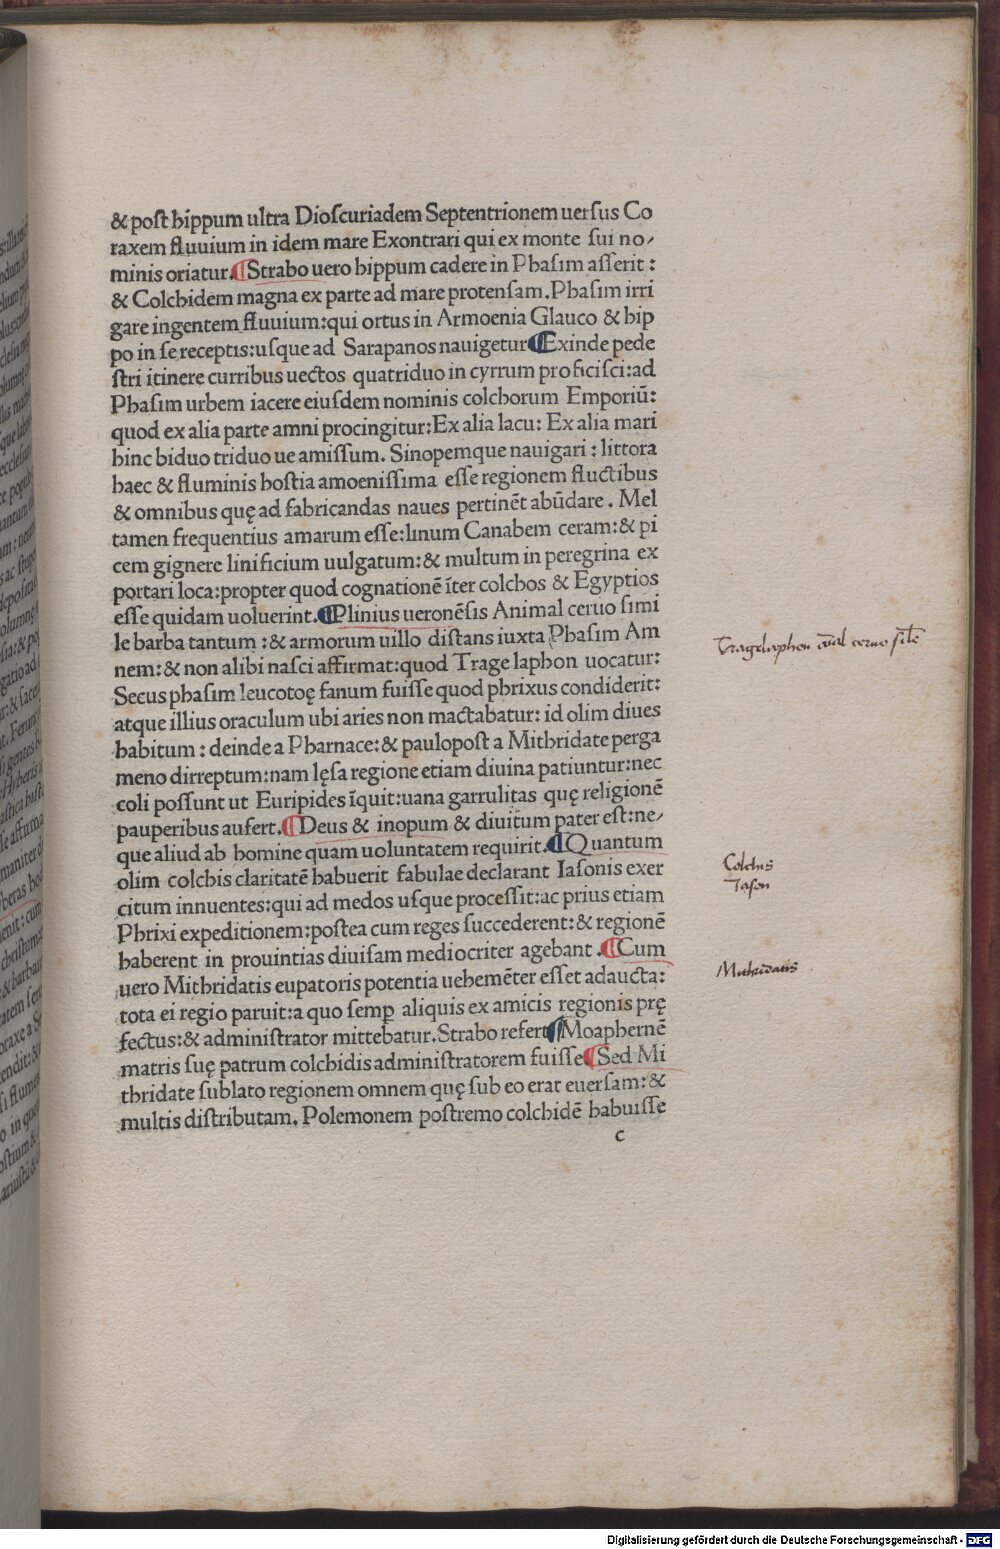 & post hippum ultra Dioscuriadem Septentrionem uersus Co
raxem fluuium in idem mare Exontrari qui ex monte sui no/
minis oriatur.¶Strabo uero hippum cadere in Phasim asserit:
& Colchidem magna ex parte ad mare protensam. Phasim irri
gare ingentem fluuium:qui ortus in Armoenia Glauco & hip
po in se receptis:usque ad Sarapanos nauigetur¶Exinde pede
stri itinere curribus uectos quatriduo in cyrrum proficisci:ad
Phasim urbem iacere eiusdem nominis colchorum Emporiū:
quod ex alia parte amni procingitur:Ex alia lacu: Ex alia mari
hinc biduo triduo ue amissum. Sinopemque nauigari: littora
haec & fluminis hostia amoenissima esse regionem fluctibus
& omnibus quę ad fabricandas naues pertinēt abūdare. Mel
tamen frequentius amarum esse:linum Canabem ceram:& pi
cem gignere linificium uulgatum:& multum in peregrina ex
portari loca:propter quod cognationē īter colchos & Egyptios
esse quidam uoluerint.¶Plinius ueronēsis Animal ceruo simi
le barba tantum:& armorum uillo distans iuxta Phasim Am
nem:& non alibi nasci affirmat:quod Trage laphon uocatur:
Secus phasim leucotoę fanum fuisse quod phrixus condiderit:
atque illius oraculum ubi aries non mactabatur: id olim diues
habitum: deinde a Pharnace:& paulopost a Mithridate perga
meno dirreptum:nam lęsa regione etiam diuina patiuntur:nec
coli possunt ut Euripides īquit:uana garrulitas quę religionē
pauperibus aufert.¶Deus & inopum & diuitum pater est:ne/
que aliud ab homine quam uoluntatem requirit.¶Quantum
olim colchis claritatē habuerit fabulae declarant Iasonis exer
citum innuentes:qui ad medos usque processit:ac prius etiam
Phrixi expeditionem:postea cum reges succederent:& regionē
haberent in prouintias diuisam mediocriter agebant.¶Cum
uero Mithridatis eupatoris potentia uehemēter esset adaucta:
tota ei regio paruit:a quo semꝑ aliquis ex amicis regionis prę
fectus:& administrator mittebatur.Strabo refert¶Moaphernē
matris suę patrum colchidis administratorem fuisse¶Sed Mi
thridate sublato regionem omnem quę sub eo erat euersam:&
multis distributam. Polemonem postremo colchidē habuisse
c
Tragelaphon aīal ceruo sile
Colchis
Iason
Mithridatis
Digitalisierung gefördert durch die Deutsche Forschungsgemeinschaft - DFG